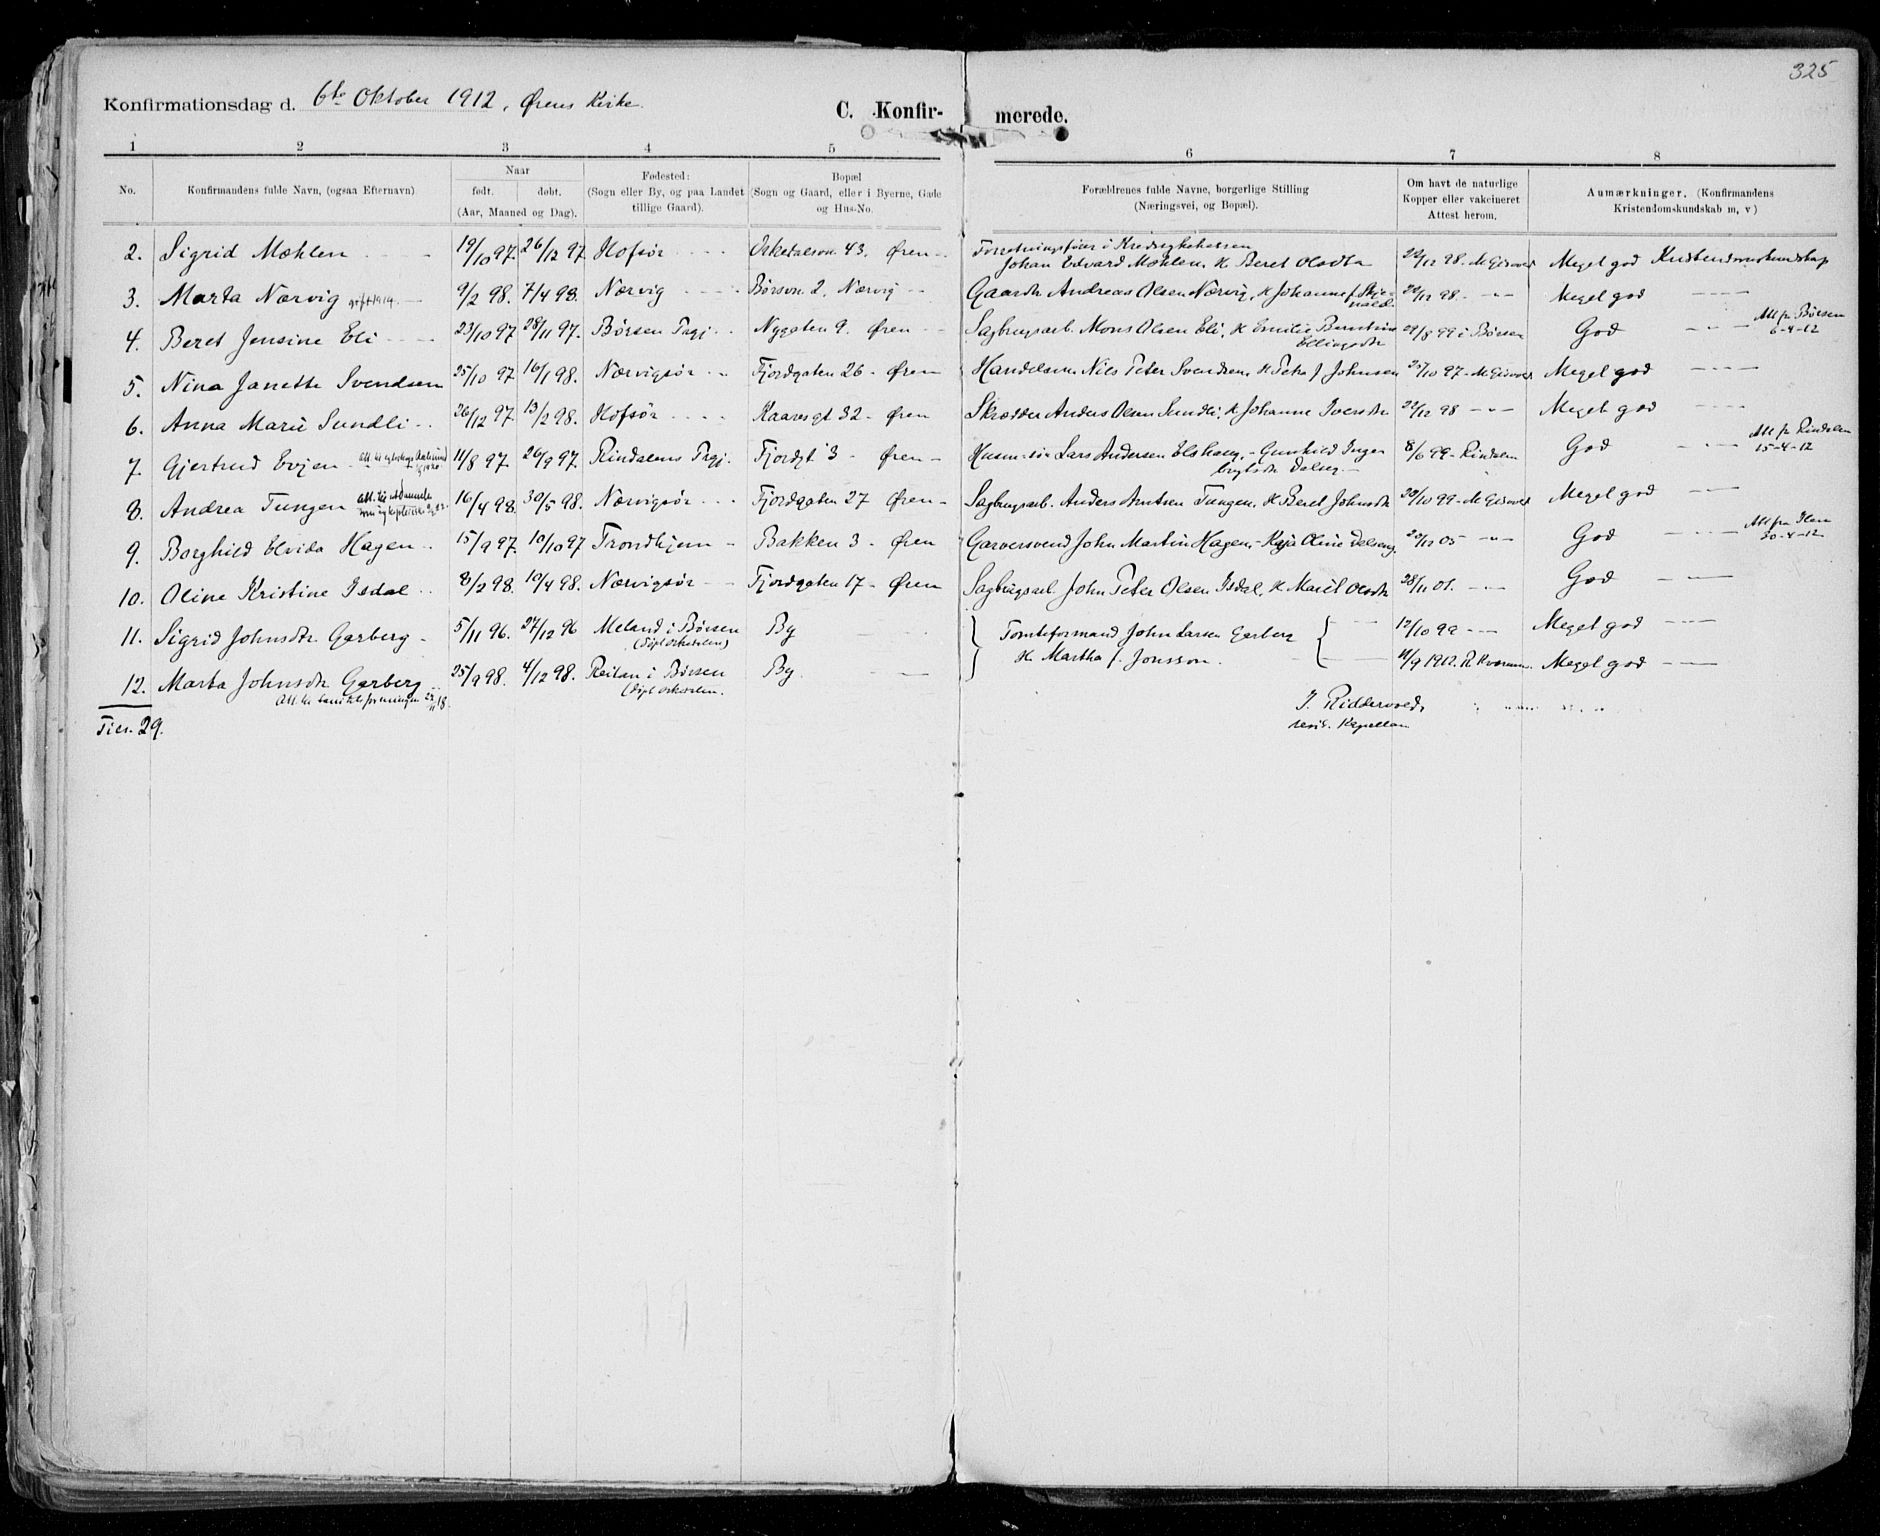 325
Konfirmationsdag d. 6te Oktober 1912, Ørens Kirke.
C. Konfirmerede.
1 2 3 4 5 6 7 8
No. Konfirmandens fulde Navn, (ogsaa Efternavn) Naar født. døbt. (Aar, Maaned og Dag). Fødested: (Sogn eller By, og paa Landet tillige Gaard). Bopæl (Sogn og Gaard, eller i Byerne, Gade og Hus-No. Forældrenes fulde Navne, borgerlige Stilling (Næringsvei, og Bopæl). Om havt de naturlige Kopper eller vakcineret Attest herom. Anmærkninger. (Konfirmandens Kristendomskundskab m, v)
2. Sigrid Mæhlen 19/10 97. 26/12 97 Hofsør 43. Øren Forretningsfører i Kredssykekassen Johan Edvard Mæhlen, H. Beret Olsdtr 22/12 98. Meget god Kristendomskundskap
3. Marta Nærvig gift 1919 9/2 98. 7/4 98. Nærvig Børsvn 2, Nærvig Gaardbr Andreas Olsen Nærvig, H. Johanne f. 22/12 98. -"- Meget god
4. Beret Jensine Eli 23/10 97 28/11 97. Børsen Prgj. Nygaten 9. Øren Sagbrugsarb. Mons Olsen Eli, H. Emilie Berntine Ellingsdtr 29/8 99 i Børsen God Att fr Børsen 6-4-12
5. Nina Janette Svendsen 25/10 97 16/1 98. Nærvigsør Fjordgaten 26 - Øren Handelsm. Nils Peter Svendsen, H. Petra f Johnsen 25/10 97 - Meget god
6. Anna Marie Sundli 26/12 97. 13/2 98. Hofsør Kaaresgt 32 - Øren Skrædder Anders Olsen Sundli, H. Johanne Iversdtr 22/12 98 -"- Meget god
7. Gjertrud Evjen 11/8 97. 26/9 97. Rindalens Prgj. Fjordgt 3 - Øren Lars Andersen - Gunhild Inge brigtsdtr 8/6 99 - Rindalen God Att fr Rindalen 15-4-12
8. Andrea Tungen 16/4 98. 30/5 98. Nærvigsør Fjordgaten 27 Øren Sagbrugsarb. Anders Arntsen Tungen, H. Beret Johnsdtr 20/10 99 - Meget god
9. Borghild Elvida Hagen 15/9 97. 10/10 97 Trondhjem Bakken 3 - Øren Garversvend John Martin Hagen, - Kaja Oline 20/12 05 -"- God Att fra Ilen 30-4-12
10. Oline Kristine Isdal 8/2 98. 10/4 98. Nærvigsør Fjordgaten 17 - Øren Sagbrugsarb. John Peter Olsen Isdal, H. Marit Olsdtr 28/11 01. God
11. Sigrid Johnsdtr. Garberg 5/11 96. 27/12 96 Meland i Børsen (døpt Orkedalen) By Tomteformand John Larsen Garberg H. Martha f. Jonsson. 12/10 99 Meget god
12. Marta Johnsdtr Garberg 25/9 98. 4/12 98. Reitan i Børsen (døpt Orkedalen. By. 11/9 1912. Meget god
Tils. 29.
J. Riddervold,
resid. Kapellan